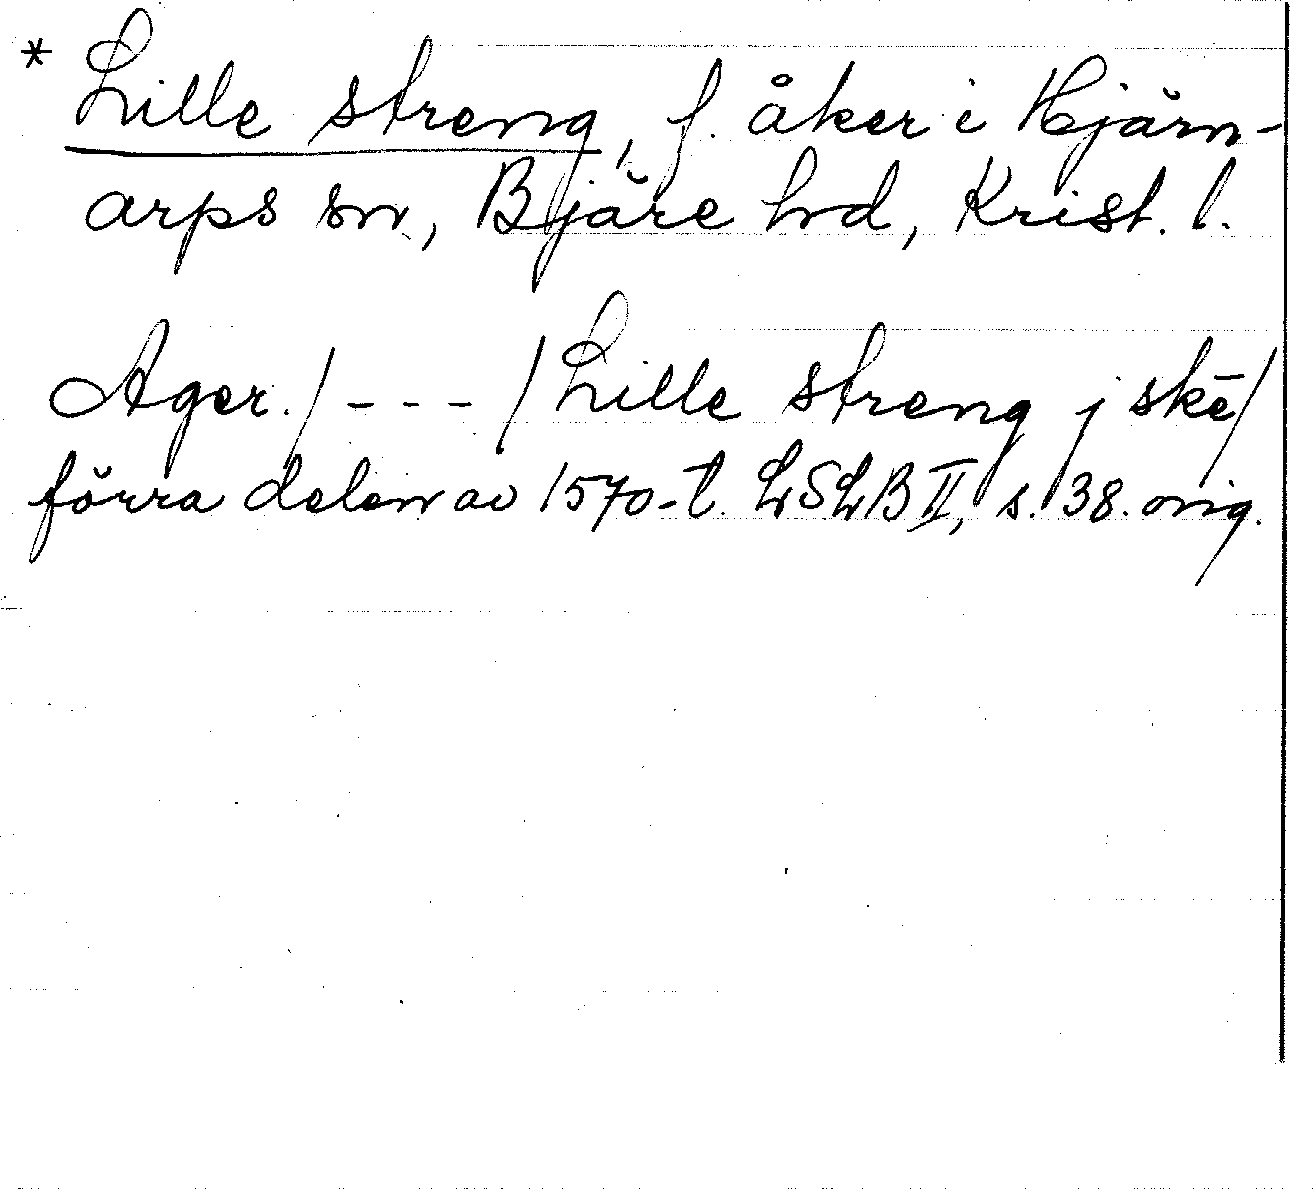 * Lille streng, f. åker i Hjärn-
arps sn, Bjäre hd, Krist. l.
Ager./ - - - / Lille streng j skē/
förra delen av 1570-t. LSLB II, s. 38. orig.